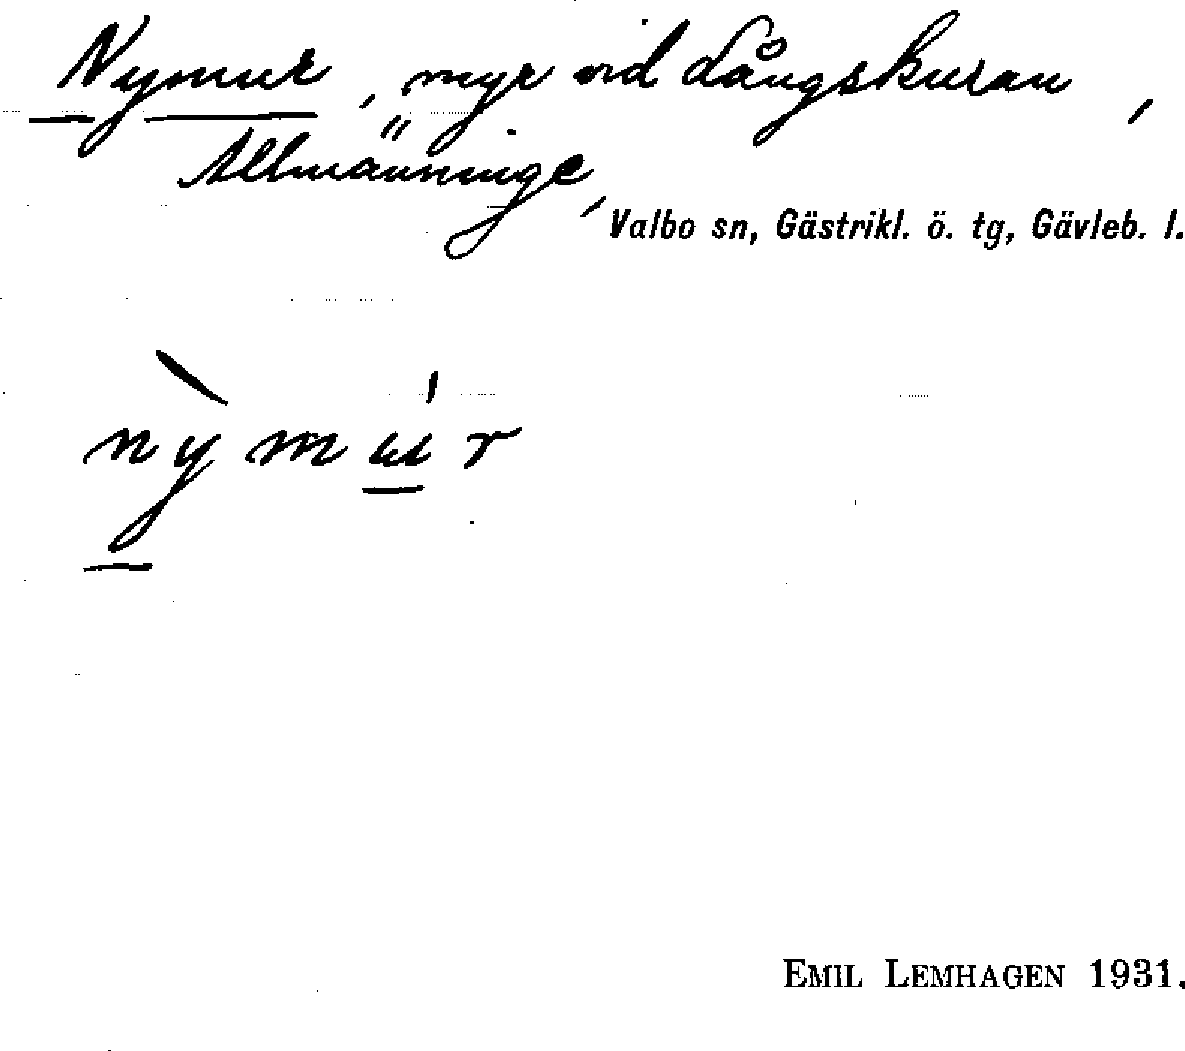 Nymur, myr vid Långskuran,
Allmänninge,
Valbo sn, Gästrikl. ö. tg, Gävleb. l.
nỳmúr
EMIL LEMHAGEN 1931.